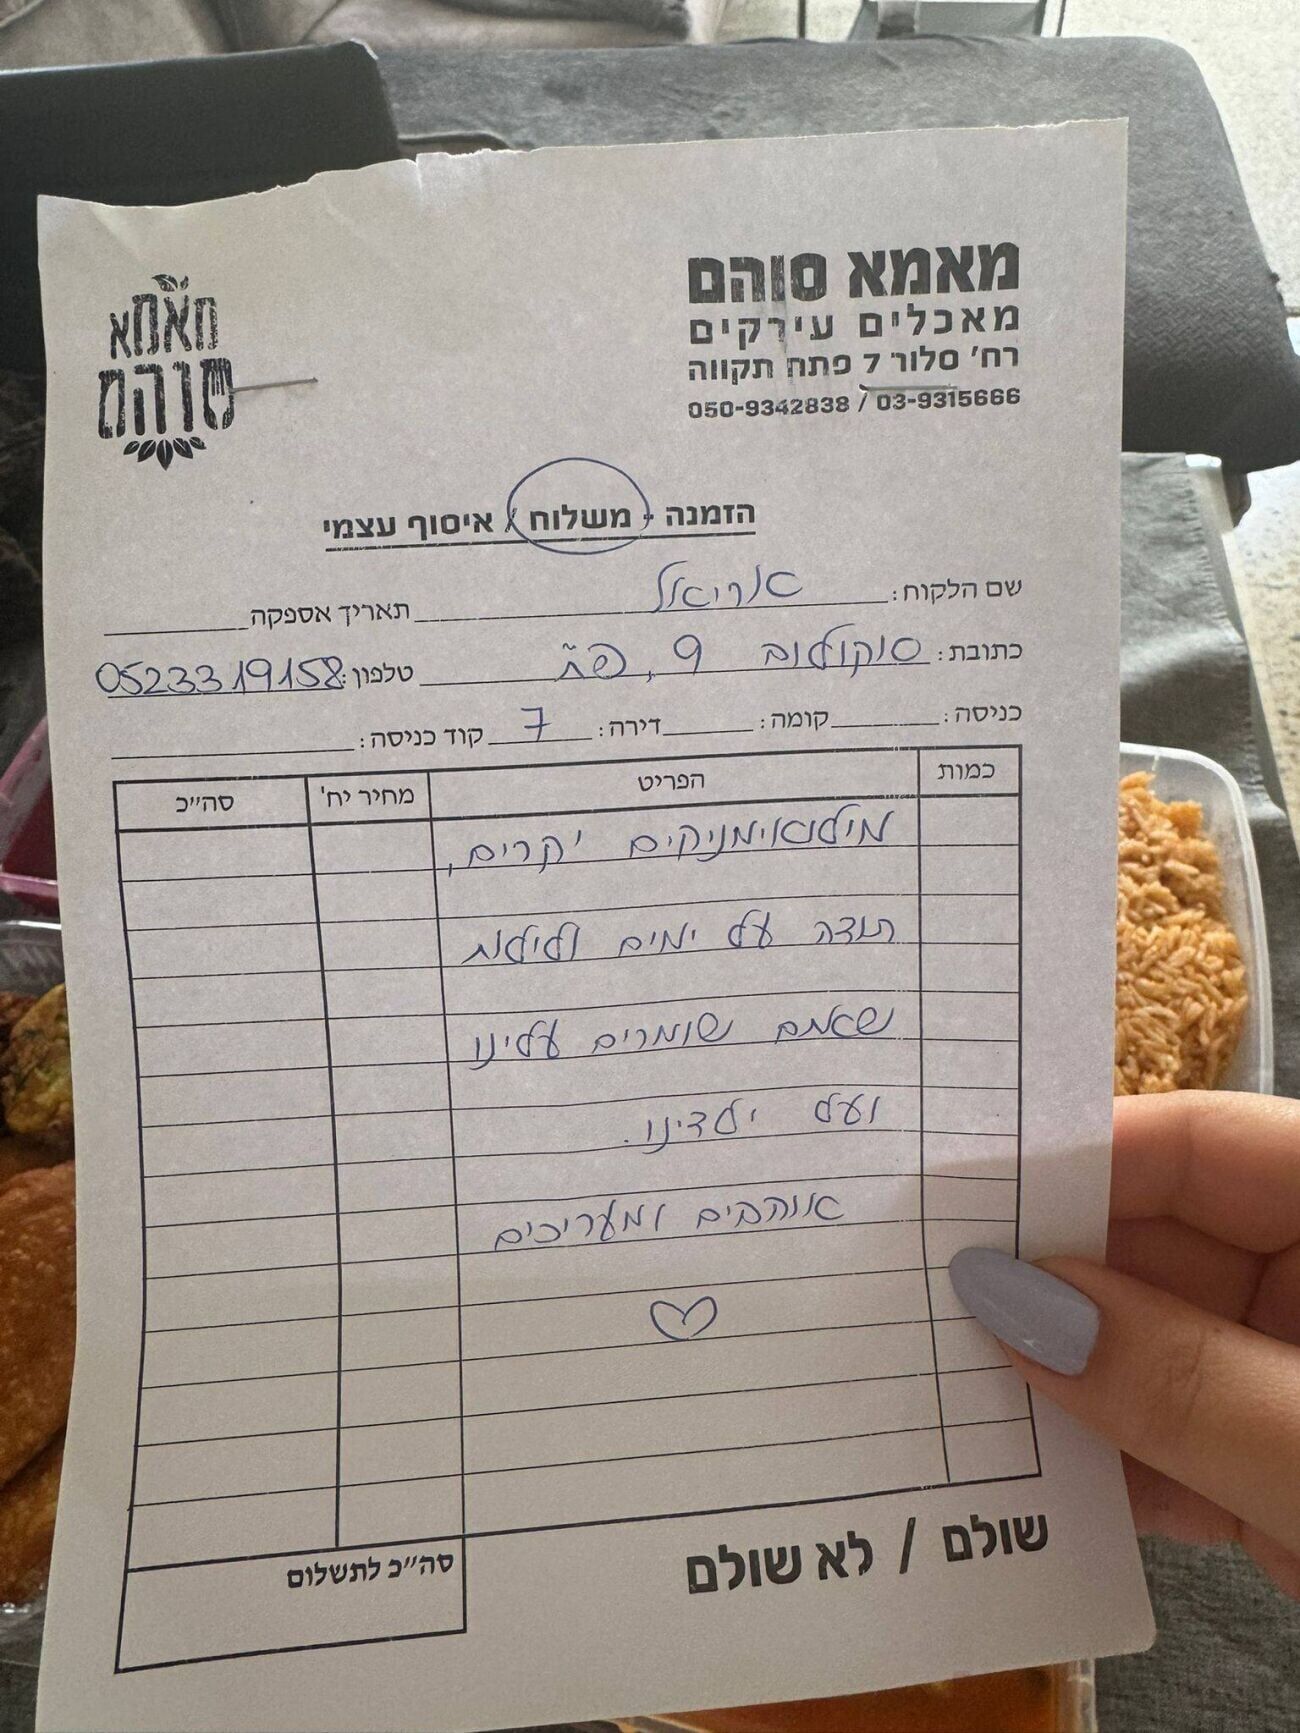 מאמא סוהם
מאמא סוהם
מאכלים עירקים
רח' סלור 7 פתח תקווה
050-9342838 / 03-9315666
הזמנה - משלוח / איסוף עצמי
שם הלקוח: אוריאל תאריך אספקה
כתובת: סוקולוב 9, פ"ת טלפון: 0523319158
כניסה: קומה: דירה: 7 קוד כניסה:
כמות הפריט מחיר יח' סה"כ
מילואימניקים יקרים,
תודה על ימים ולילות
שאתם שומרים עלינו
ועל ילדינו.
אוהבים ומעריכים
♡
שולם / לא שולם
סה"כ לתשלום